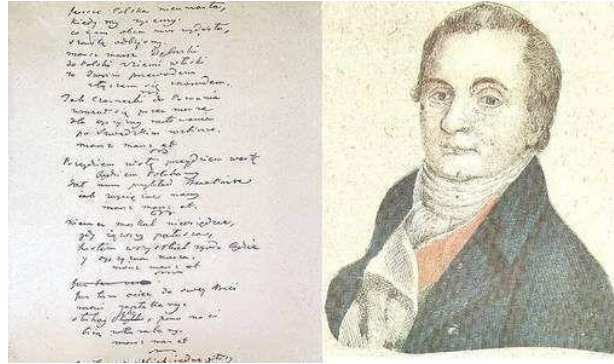 Jeszcze Polska nieumarła,
kiedy my żyiemy
co nam obca moc wydarła,
szablą odbijemy.
marsz marsz Dąbroski
do Polski z ziemi włoski
za Twoim przewodem
złączem się z narodem.
Jak Czarnecki do Poznania
wracał się przez morze
dla oyczyzny ratowania
po Szwedzkim rozbiorze.
marsz marsz et
Przejdziem Wisłę przejdziem Wartę
będziem Polakami
dał nam przykład Bonaparte
jak zwyciężać mamy
marsz marsz et.
Niemiec moskal nieosiędzie,
gdy jąwszy pałasza,
hasłem wszystkich zgoda będzie
y oyczyzna nasza.
marsz marsz et
Już tam ociec do swey Basi
mówi zapłakany
słuchay pono nasi
biią tarabany.
marsz marsz et